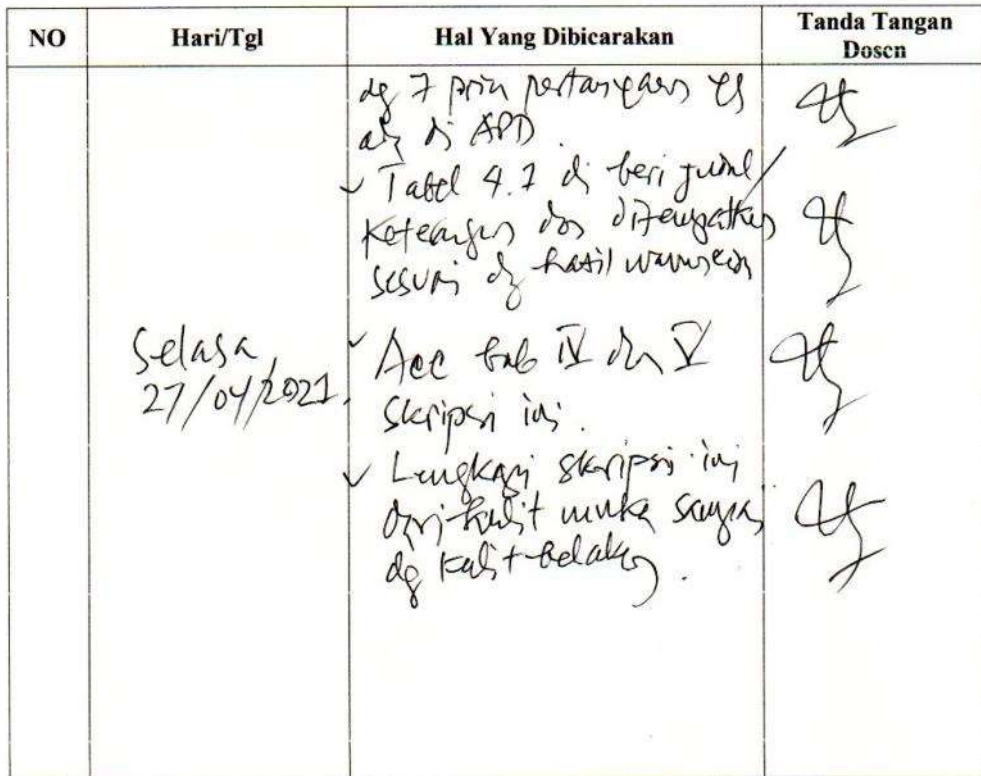 NO
Hari/Tgl
Hal Yang Dibicarakan
Tanda Tangan
Dosen
dg 7 poin pertanyaan yg
ada di APD
Tabel 4.7 di beri judul
keterangan dan ditempatkan
sesuai dg hasil wawancara
Selasa,
27/04/2021
Acc bab IV dan V
skripsi ini.
Lengkapi skripsi ini
dari kulit muka sampai
dg kulit belakang.